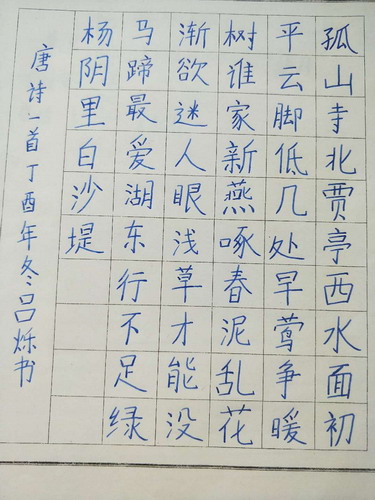 孤山寺北贾亭西水面初
平云脚低几处早莺争暖
树谁家新燕啄春泥乱花
渐欲迷人眼浅草才能没
马蹄最爱湖东行不足绿
杨阴里白沙堤
唐诗一首丁酉年冬吕烁书